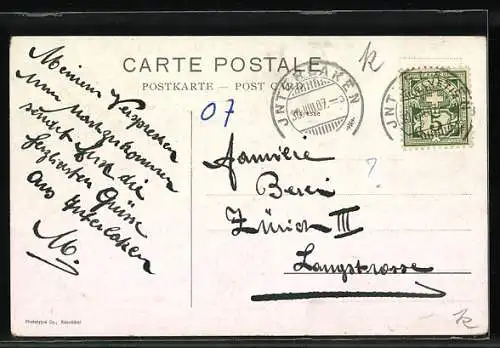 CARTE POSTALE
POSTKARTE — POST CARD
Meinem Versprechen
nachzukommen
sendet die
herzlichsten Grüsse
aus Interlaken
M.
07
k
JNTERLAKEN
VIII.07
JNTERLAKEN
HELVETIA
Familie
Zürich III
Langstrasse
?
k
Phototypie Co., Neuchâtel